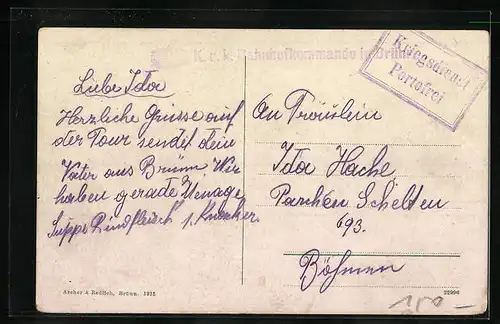 K. u. k. Bahnhofkommando in Brünn
Kriegsdienst
Portofrei
Liebe Ida
Herzliche Grüsse auf
der Tour sendet dein
Vater aus Brünn. Wir
haben gerade Menage
Suppe Rindfleisch 1.
An Fräulein
Ida Hache
Parchen Schelten
693.
Böhmen
Ascher & Redlich, Brünn. 1915
150-